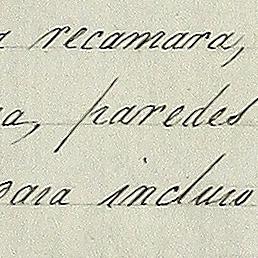 a recamara,
a, paredes
para incluso